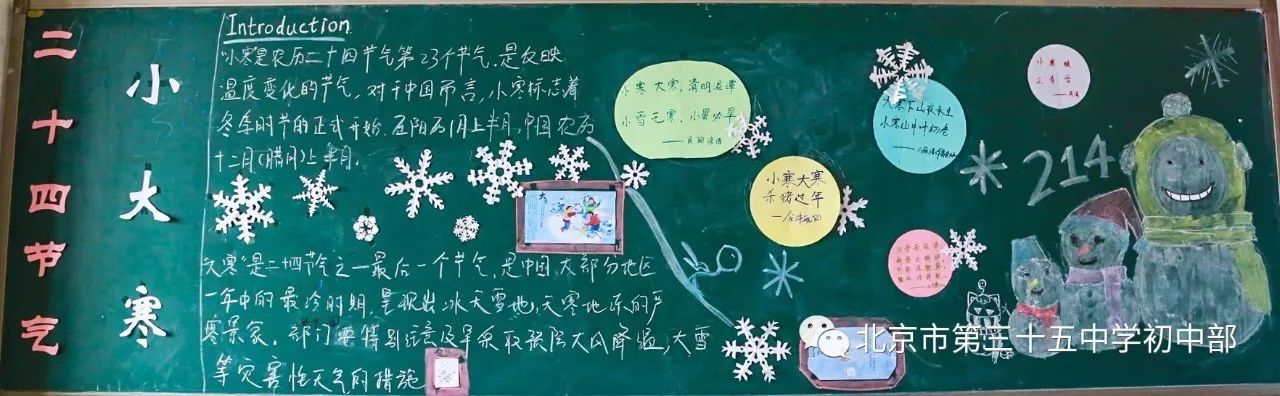 二十四节气
小大寒
Introduction
"小寒"是农历二十四节气第23个节气,是反映
温度变化的节气,对于中国而言,小寒标志着
冬季时节的正式开始.在阳历1月上半月,中国农历
十二月(腊月)上半月.
小寒大寒,清明泥潭
小雪无寒,小暑必旱
大
小寒大寒
杀猪过年
214
"大寒"是二十四节气之一最后一个节气,是中国大部分地区
一年中的最冷时期,呈现出冰天雪地,天寒地冻的严
寒景象.部门要特别注意及早采取预防大风降温,大雪
等灾害性天气的措施
北京市第三十五中学初中部